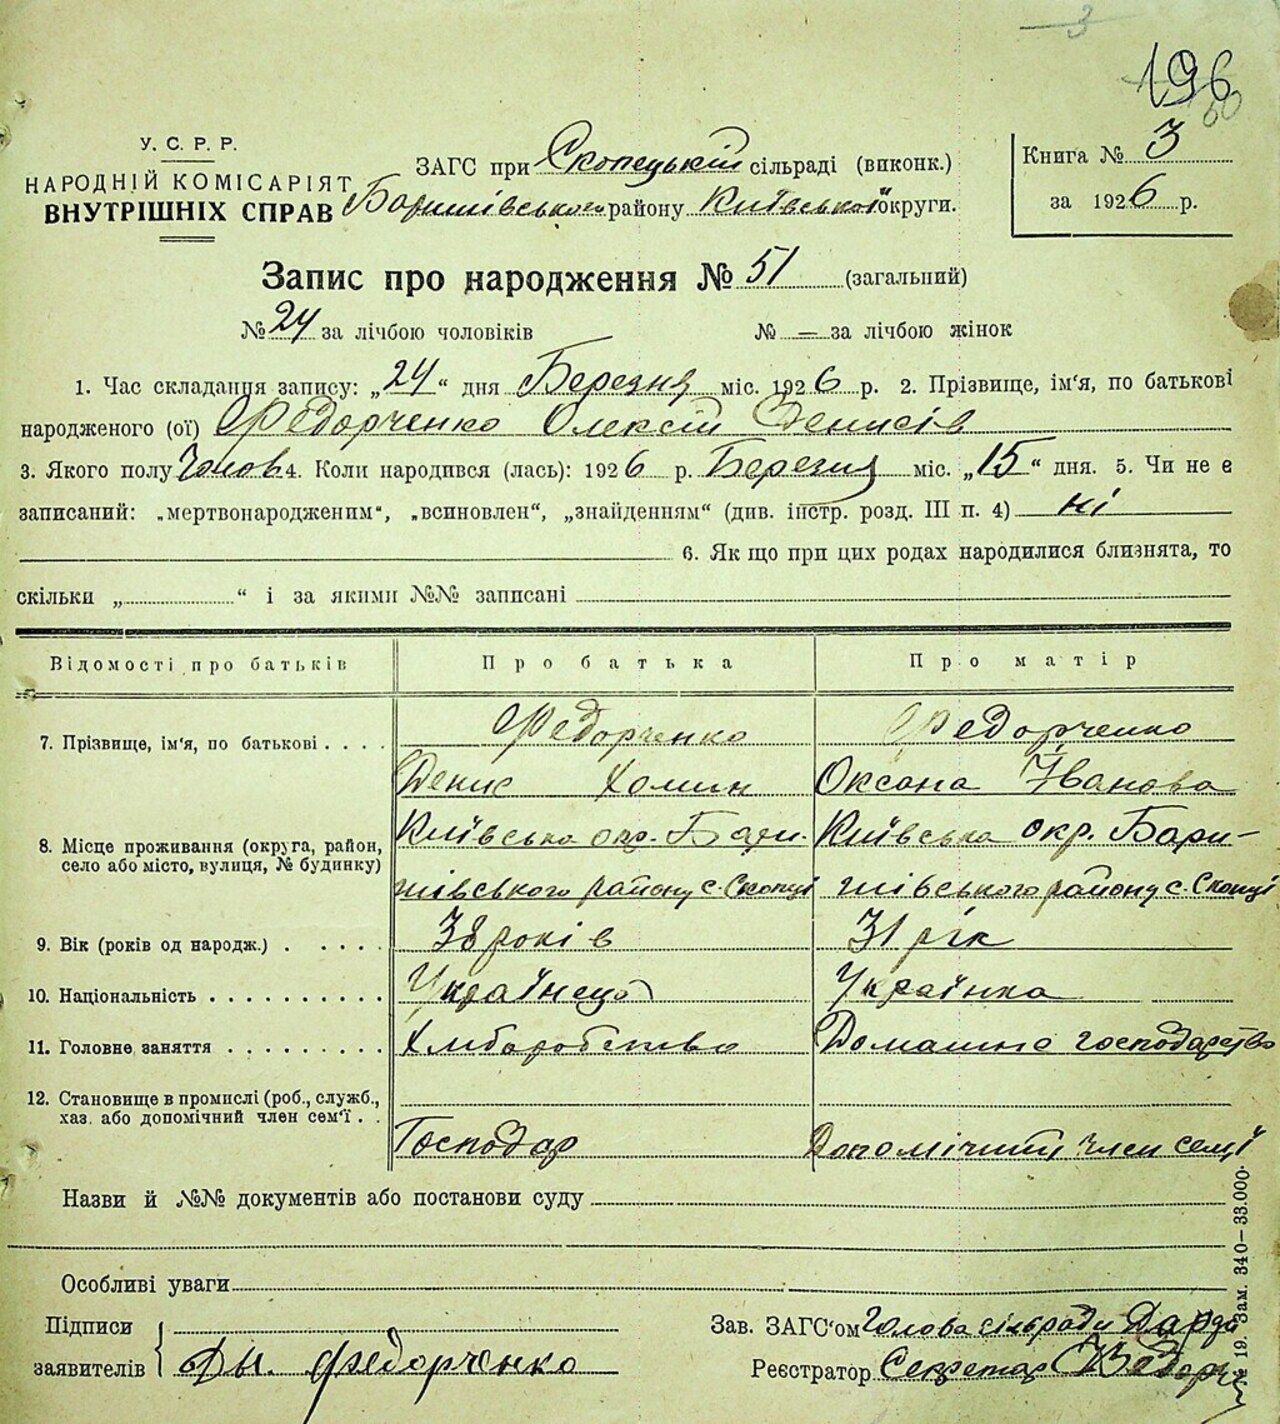 3
196
60
У. С. Р. Р.
НАРОДНІЙ КОМІСАРІЯТ
ВНУТРІШНІХ СПРАВ
ЗАГС при Скопецькій сільраді (виконк.)
Баришівського району Київської округи.
Книга № 3
за 1926 р.
Запис про народження № 51 (загальний)
№ 24 за лічбою чоловіків № = за лічбою жінок
1. Час складання запису: „24“ дня Березня міс. 1926 р. 2. Прізвище, ім‘я, по батькові
народженого (ої) Федорченко Олексій Денисів
3. Якого полу Чолов 4. Коли народився (лась): 1926 р. Березня міс. „15“ дня. 5. Чи не є
записаний: „мертвонародженим“, „всиновлен“, „знайденням“ (див. інстр. розд. III п. 4) ні
6. Як що при цих родах народилися близнята, то
скільки „ “ і за якими №№ записані
Відомості про батьків Про батька Про матір
7. Прізвище, ім‘я, по батькові . . . . Федорченко Федорченко
Денис Хомин Оксана Іванова
8. Місце проживання (округа, район, Київська окр. Бари- Київська окр. Бари-
село або місто, вулиця, № будинку) шівського району с. Скопці шівського району с. Скопці
9. Вік (років од народж.) . . . . . 38 років 31 рік
10. Національність . . . . . . . . . . Українець Українка
11. Головне заняття . . . . . . . . . Хліборобство Домашнє господарство
12. Становище в промислі (роб., служб.,
хаз. або допомічний член сем‘ї . .
Господар Допомічний член семї
Назви й №№ документів або постанови суду
Особливі уваги
Підписи
заявителів Ды. Федорченко
Зав. ЗАГС‘ом Голова сільради
Реєстратор Секретар
№ 19. Зам. 340–33.000.